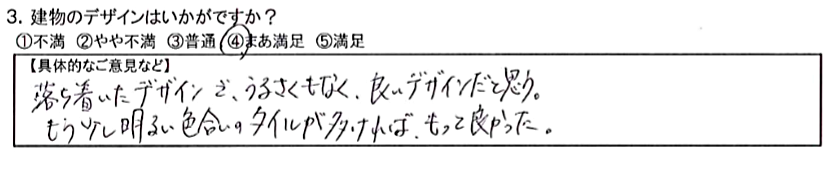 3. 建物のデザインはいかがですか？
①不満 ②やや不満 ③普通 ④まあ満足 ⑤満足
【具体的なご意見など】
落ち着いたデザインで、うるさくもなく、良いデザインだと思う。
もう少し明るい色合いのタイルが多ければ、もっと良かった。